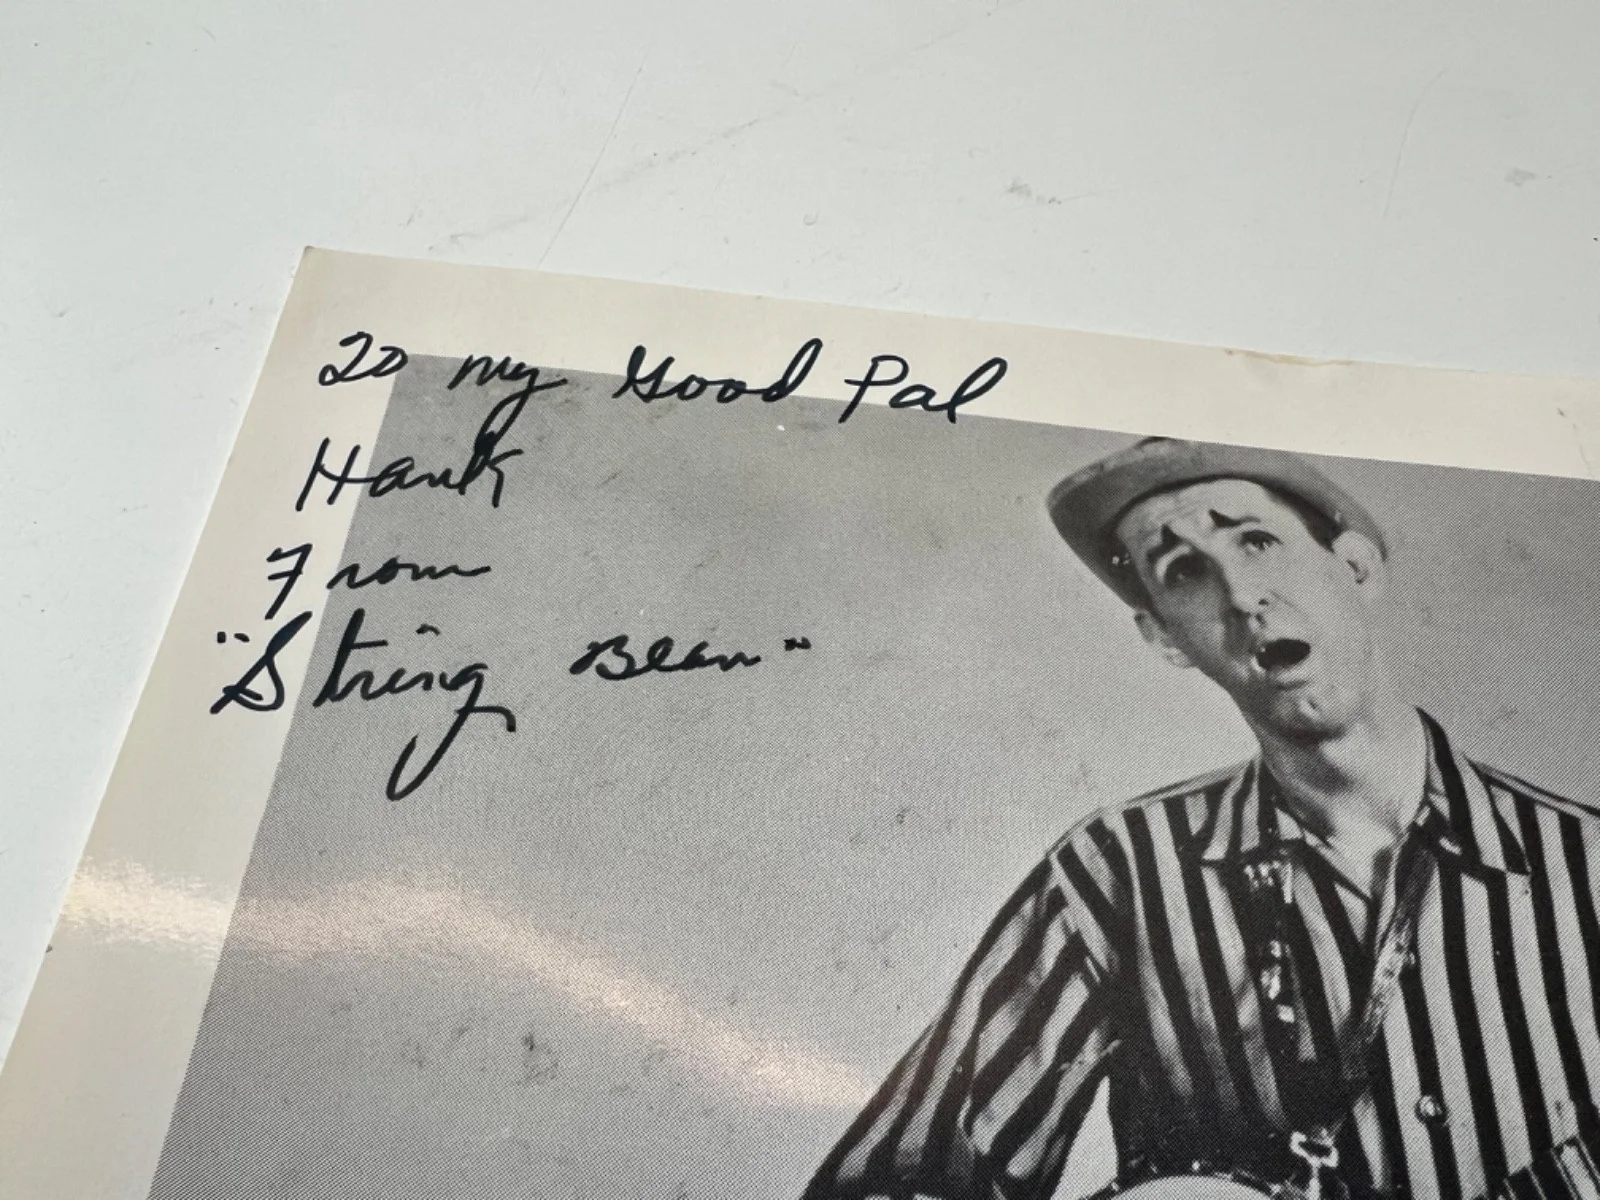 To my Good Pal
Hank
From
"String Bean"